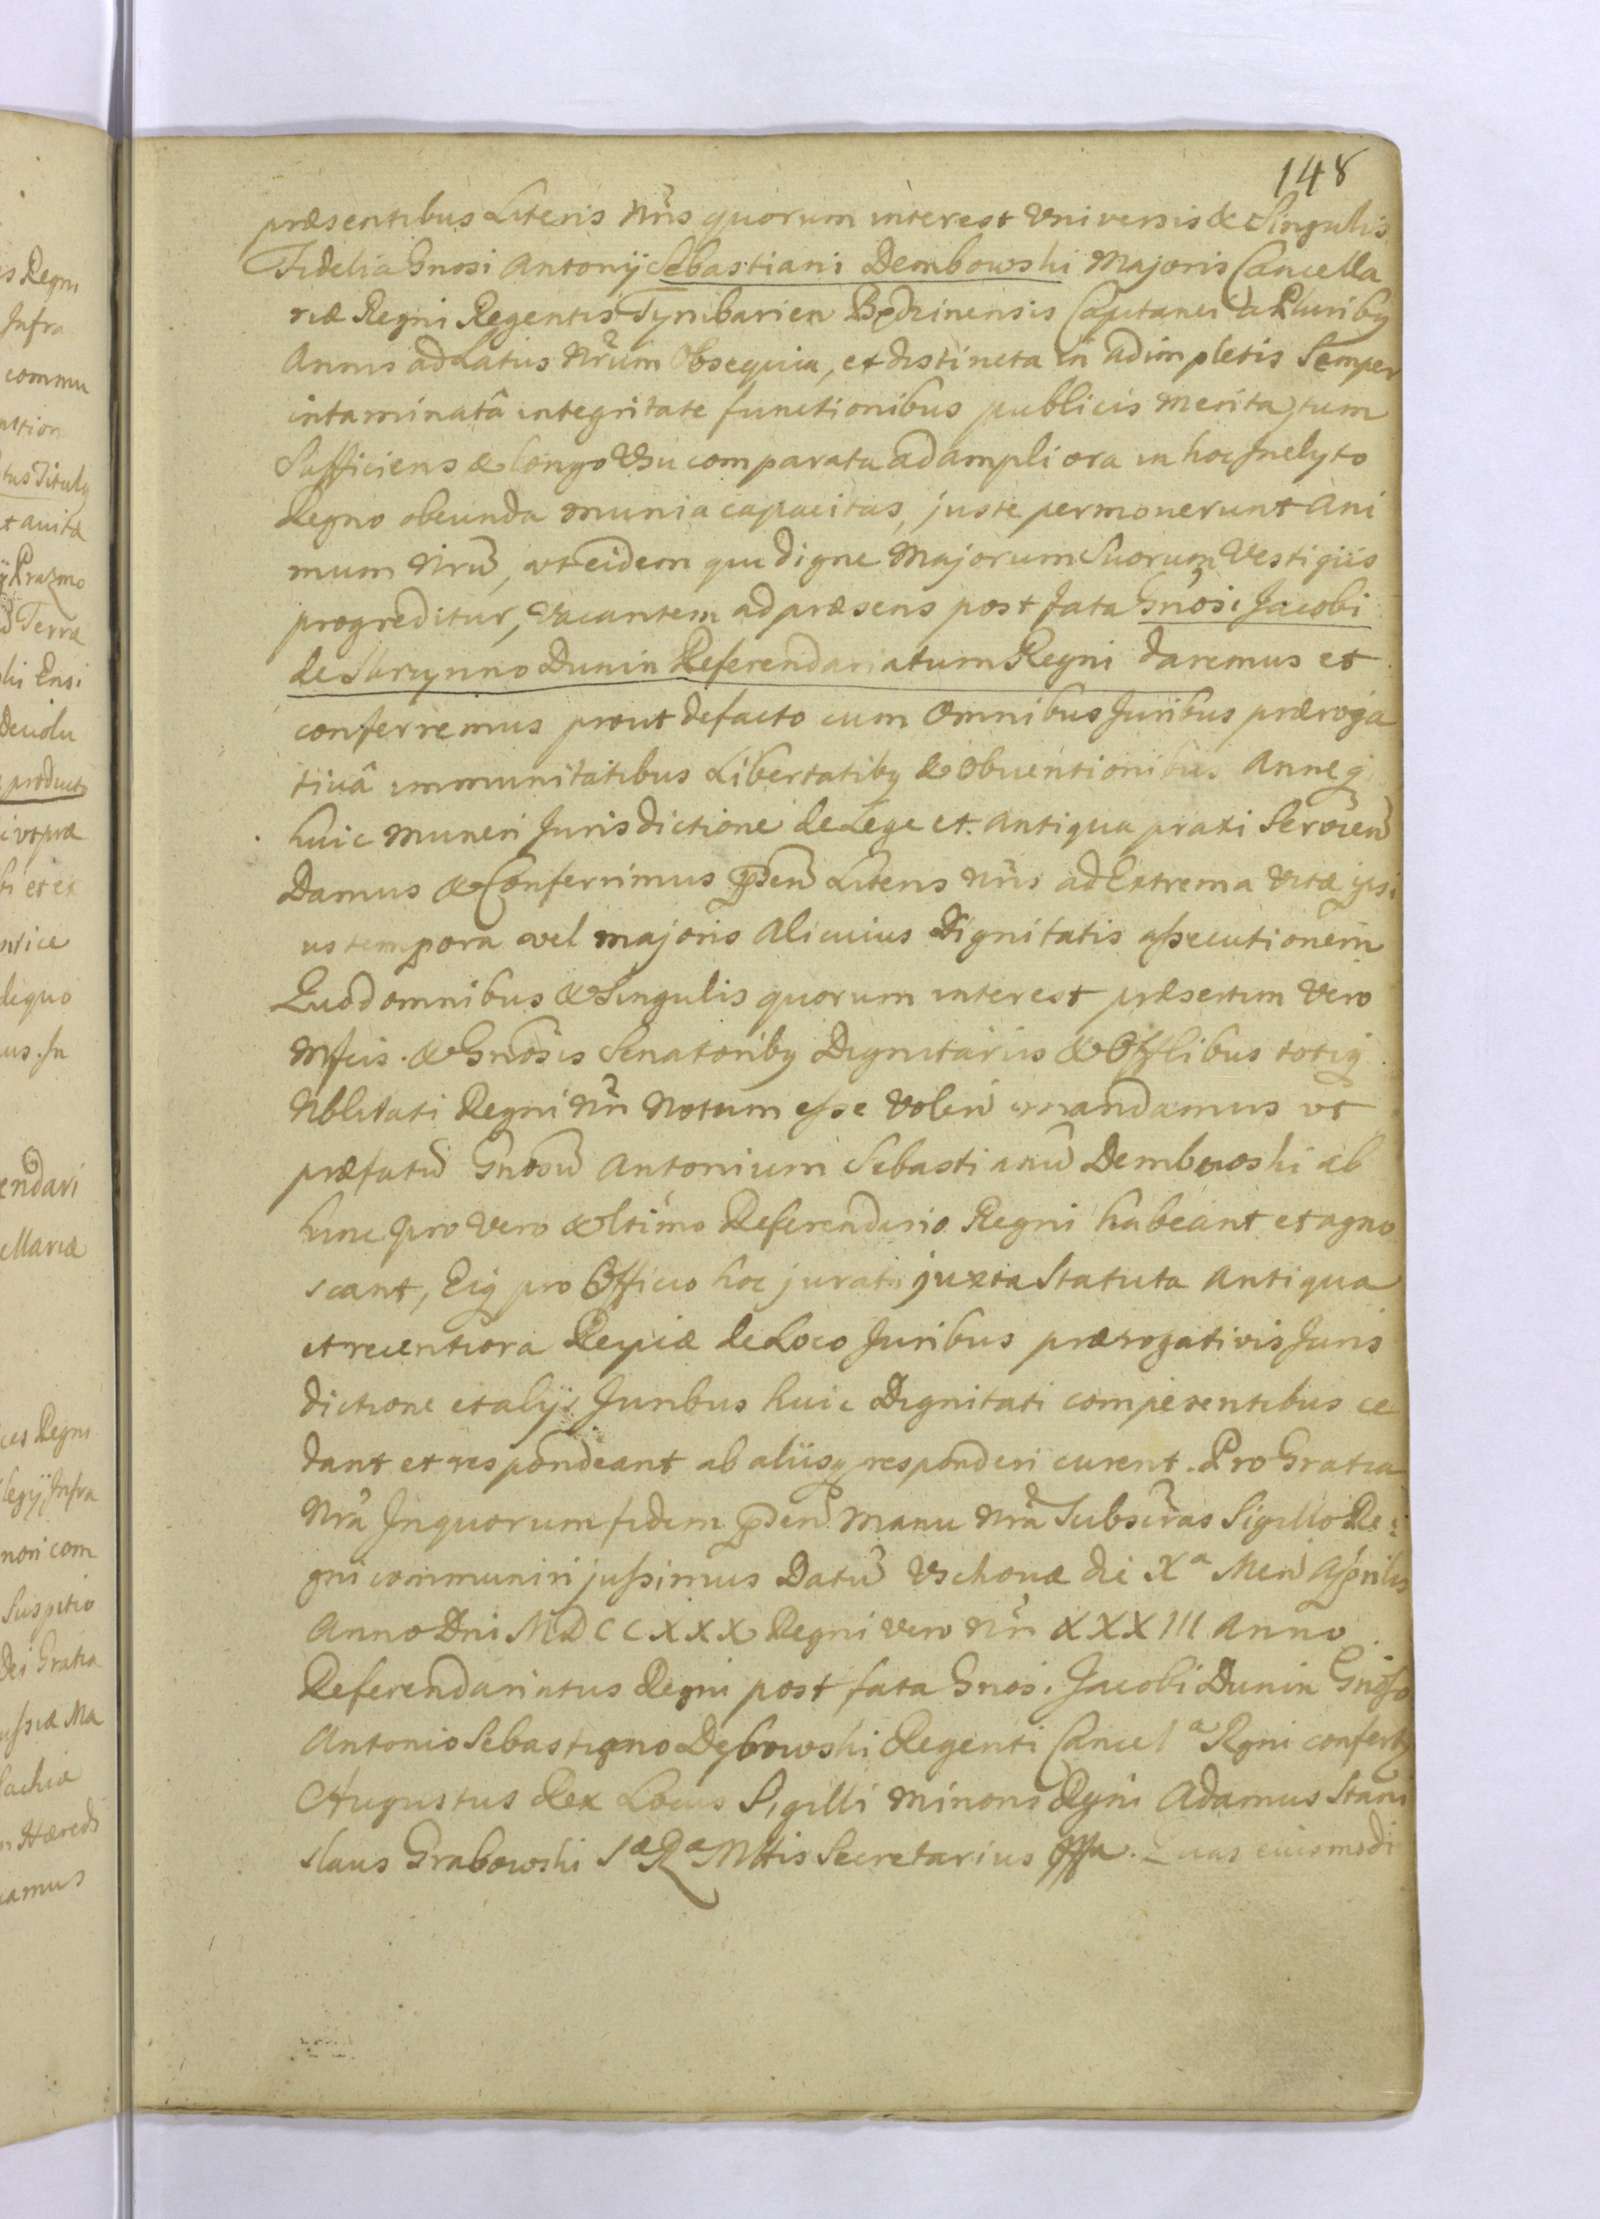 148
præsentibus Literis Nris quorum interest Universis & Singulis
Fidelia Gnosi Antonij Sebastiani Dembowski Majoris Cancella
riæ Regni Regentis Tymbarien Będzinensis Capitanei a Pluribg
Annis ad Latus Nrum Obsequia, et distincta in adimpletis Semper
intaminatâ integritate functionibus publicis merita, tum
Sufficiens & longo Usu comparata ad ampliora in hoc Inclyto
Regno obeunda munia capacitas, juste permoverunt Ani
mum Nrũ, ut eidem qui digne Majorum Suorum Vestigiis
progreditur, Vacantem ad præsens post fata Gnosi Jacobi
de Skrzynno Dunin Referendariatum Regni daremus et
conferremus prout defacto cum Omnibus Juribus præroga
tivâ immunitatibus Libertatibg & Obventionibus Anneq
huic Muneri Jurisdictione de Lege et Antiqua praxi Servien
Damus & Conferimus pden Literis Nris ad Extrema vitæ ipsi
us tempora vel majoris Alicuius Dignitatis assecutionem
Quod omnibus & Singulis quorum interest præsertim Vero
Mfcis & Gnosis Senatoribg Dignitariis & Offlibus totiq
Nblitati Regni Nri Notum esse Volen mandamus ut
præfatũ Gnosũ Antonium Sebastianũ Dembowski ab
hinc pro Vero & ltimo Referendario Regni habeant et agno
scant, Eiq pro Officio hoc jurati juxta Statuta Antiqua
et recentiora Reipcæ de Loco Juribus prærogativis Juris
dictione et alijs Juribus huic Dignitati competentibus ce
dant et respondeant ab aliisq responderi curent. Pro Gratia
Nra In quorum fidem pden Manu Nra Subscras Sigillo Re
gni communiri jussimus Datũ Vschovæ die Xª Men Aprilis
Anno Dni MDCCXXX Regni vero Nri XXXIII Anno
Referendariatus Regni post fata Gnosi Jacobi Dunin Gnoso
Antonio Sebastiano Dębowski Regenti Cancelª Rgni confertg
Augustus Rex Locus Sigilli minoris Rgni Adamus Stani
slaus Grabowski Sæ Rª Mttis Secretarius Quas eiusmodi